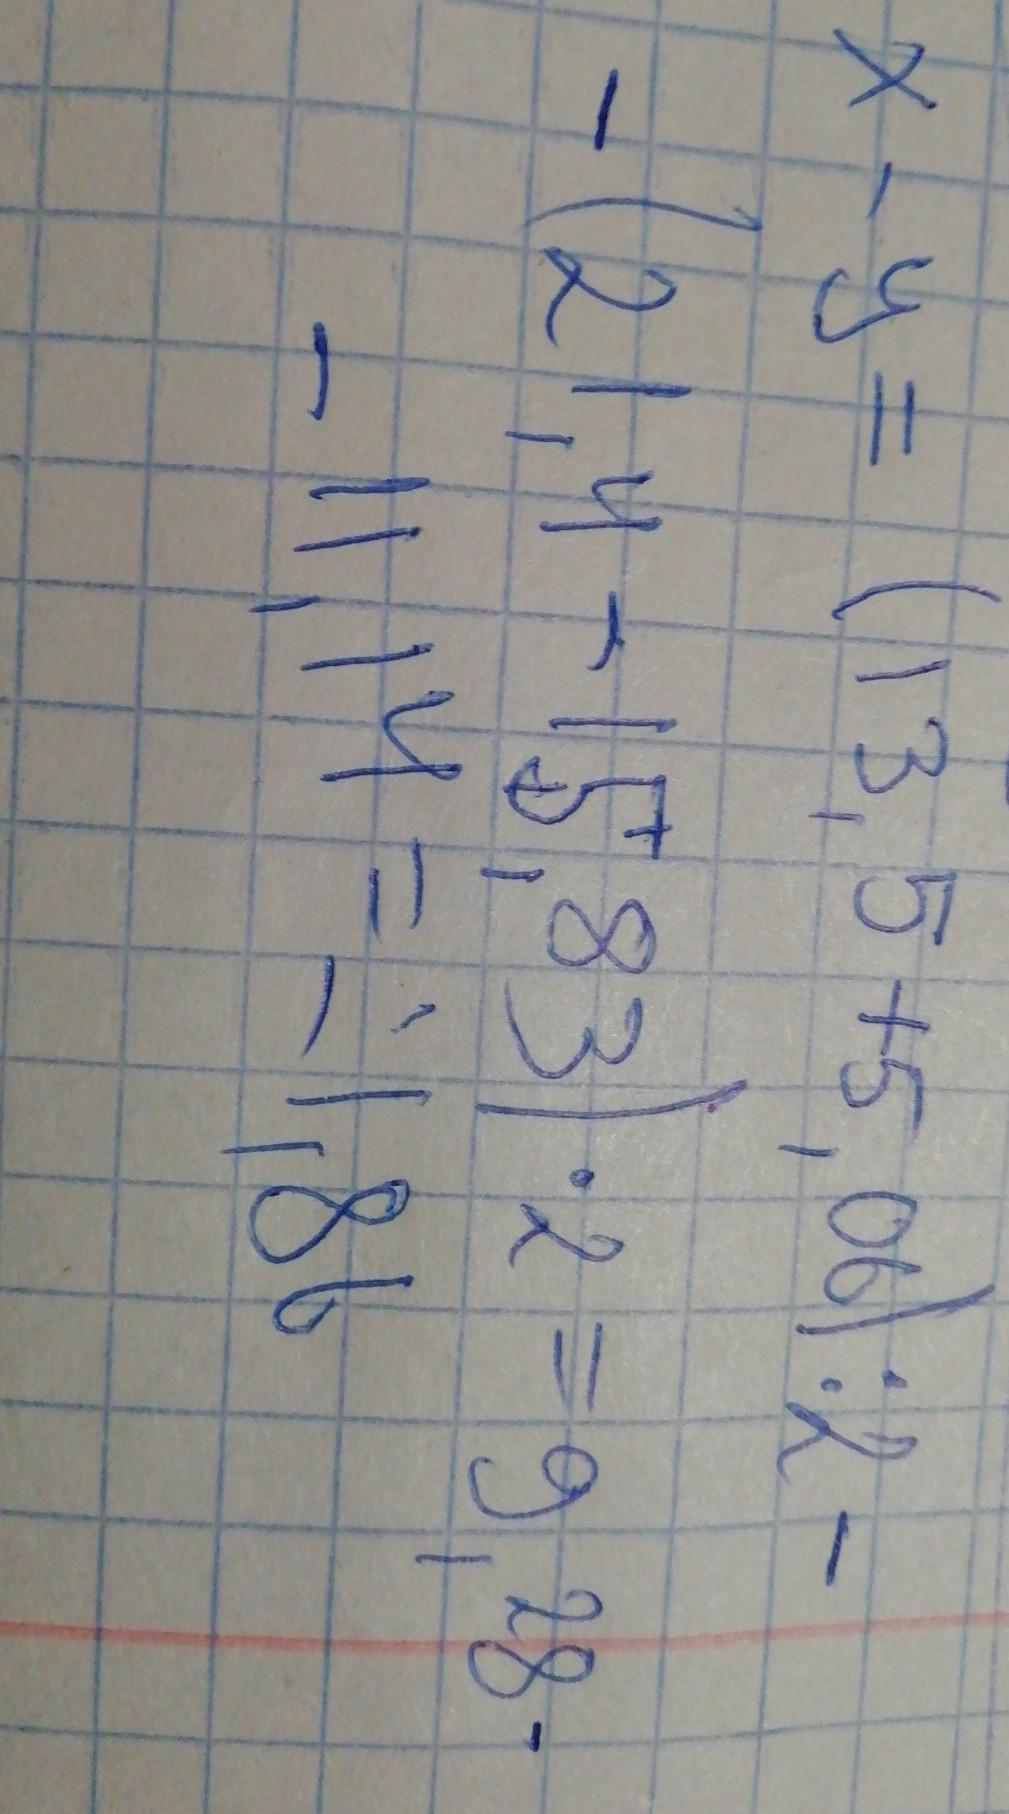 x - y = (13,5+5,06):2 -
- (21,4 - 15,83)·2 = 9,28 -
- 11,14 = - 1,86